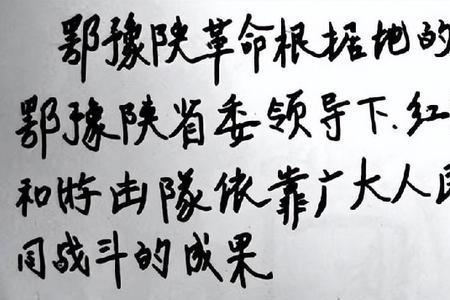 鄂豫陕革命根据地的
鄂豫陕省委领导下.红
和游击隊依靠广大人民
同战斗的成果